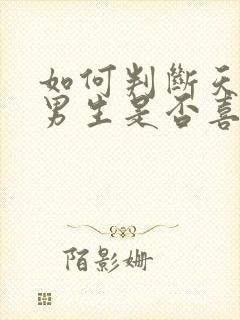 如何判斷天
男生是否喜
陌影姗